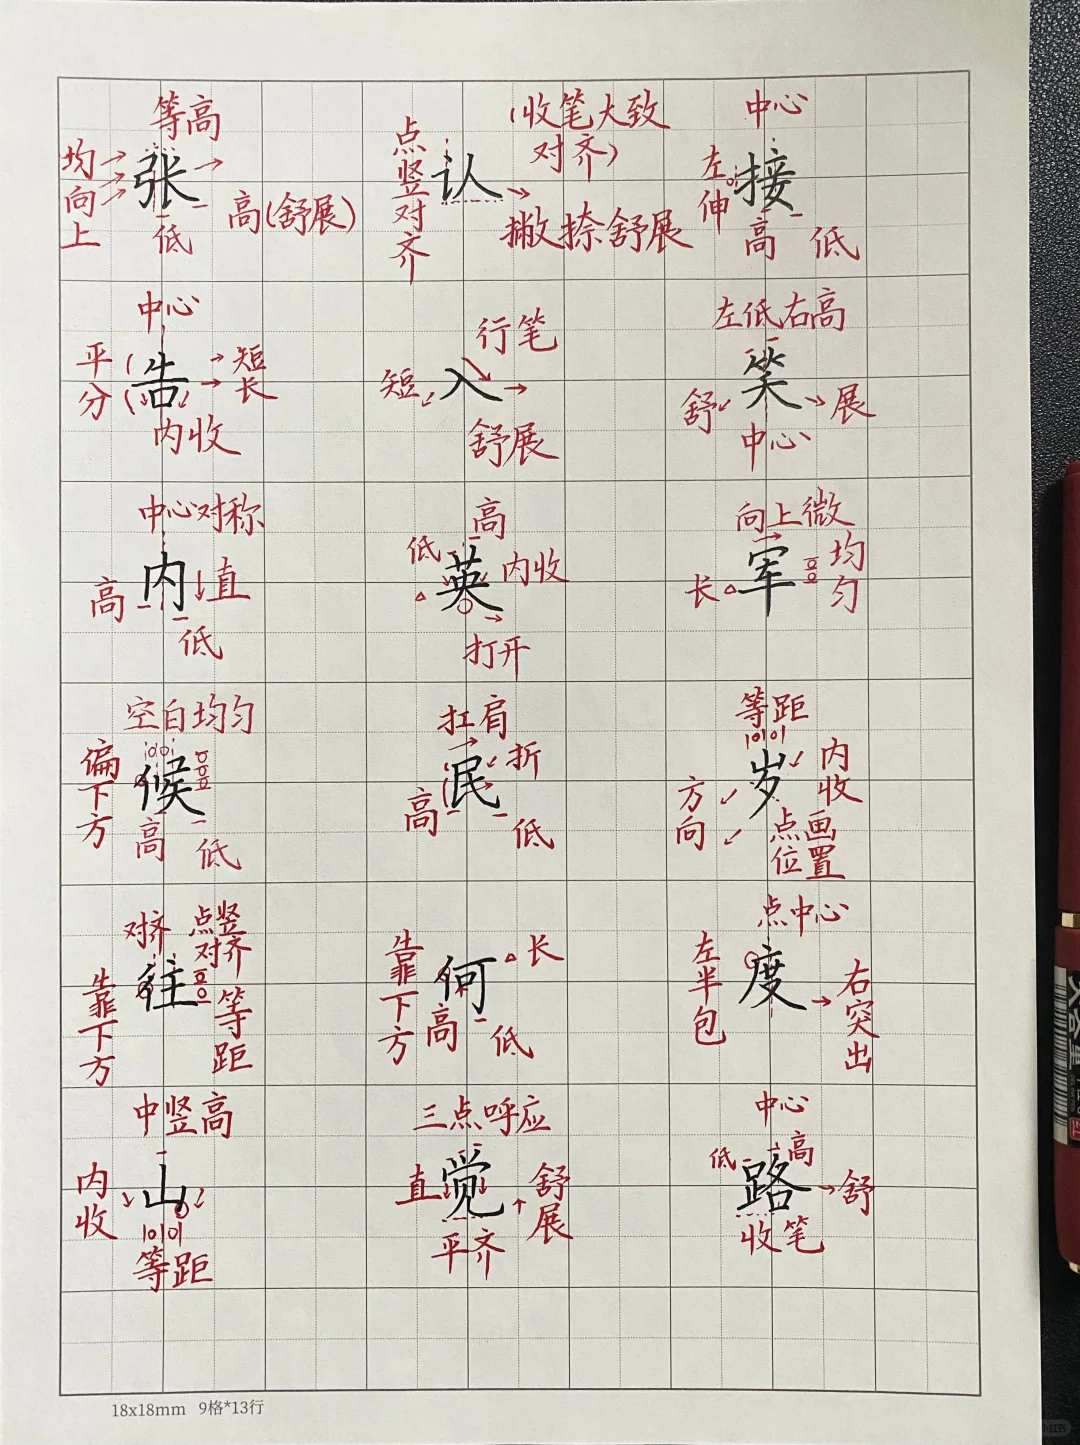 等高
均向上
张
低
高(舒展)
点竖对齐
认
(收笔大致
对齐)
撇捺舒展
中心
左伸
接
高 低
中心
平分
告
短
长
内收
行笔
短
入
舒展
左低右高
笑
舒
展
中心
中心对称
高
内
直
低
高
低
英
内收
打开
向上微
长
军
均匀
空白均匀
偏下方
候
高 低
扛肩
民
折
高
低
等距
岁
内收
方向
点画
位置
对齐
点竖
对齐
靠下方
往
等距
靠下方
何
长
高
低
点中心
左半包
度
右突出
中竖高
内收
山
等距
三点呼应
直
觉
舒展
平齐
中心
低
高
路
舒
收笔
18x18mm 9格*13行